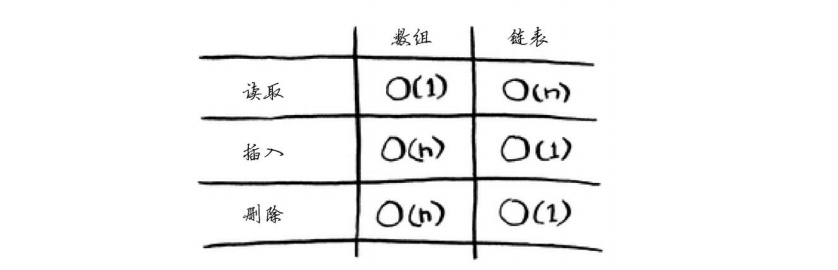 数组 链表
读取 O(1) O(n)
插入 O(n) O(1)
删除 O(n) O(1)